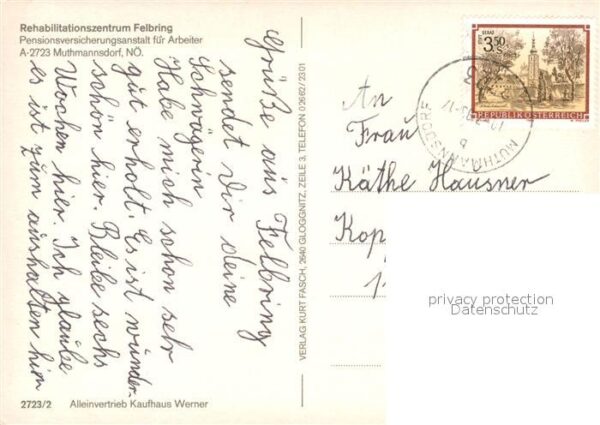 Rehabilitationszentrum Felbring
Pensionsversicherungsanstalt für Arbeiter
A-2723 Muthmannsdorf, NÖ.
Grüße aus Felbring
sendet Dir deine
Schwägerin
Habe mich schon sehr
gut erholt. Es ist wunder-
schön hier. Bleibe sechs
Wochen hier. Ich glaube
es ist zum aushalten hier
2723/2 Alleinvertrieb Kaufhaus Werner
VERLAG KURT FASCH, 2640 GLOGGNITZ, ZEILE 3, TELEFON 02662/2301
3.50
REPUBLIK ÖSTERREICH
MUTHMANNSDORF
An
Frau
Käthe Hausner
Kop
1
privacy protection
Datenschutz